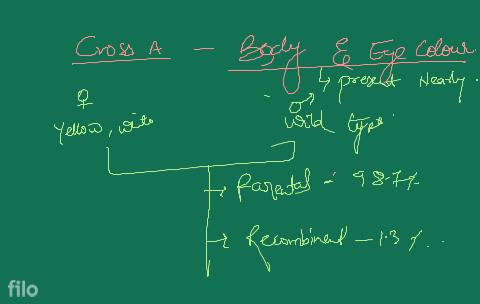 Cross A - Body & Eye Colour
↳ present nearby.
♀ ♂
Yellow, white wild type
→ Parental - 98.7%
→ Recombinent - 1.3%
filo